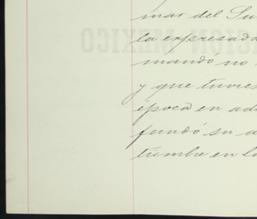 mar del Su
la expresada
mandó no
y que tuvies
época en ad
fundó su a
tumbre en lo